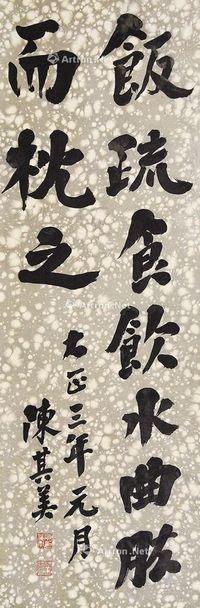 飯疏食飲水曲肱
而枕之
大正三年元月
陳其美
Artron.Net